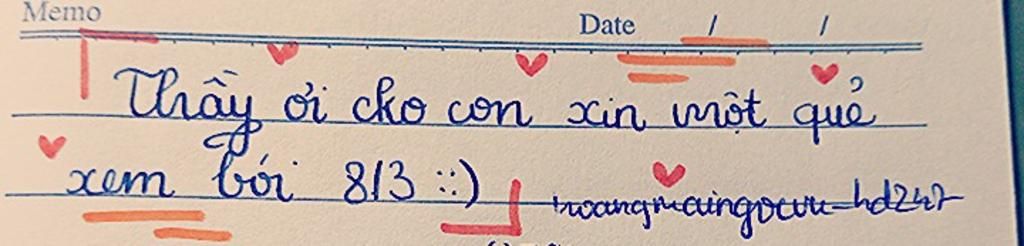 Memo
Date / /
Thầy ơi cho con xin một quẻ
xem bói 8/3 ::)